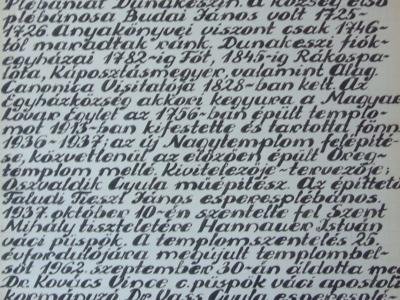 Plébániát Dunakeszin. A község első
plébánosa Budai János volt 1725-
1726. Anyakönyvei viszont csak 1746-
tól maradtak ránk. Dunakeszi fiók-
egyházai 1782-ig Fót, 1845-ig Rákospa-
lota, Káposztásmegyer, valamint Alag.
Canonica Visitatója 1828-ban kelt. Az
Egyházközség akkori kegyura a Magyar
Lovar Egylet az 1756-ban épült templo-
mot 1913-ban kifestette és tartotta fönn
1936-1937; az új Nagytemplom felépíté-
se, közvetlenül az előzően épült Öreg-
templom mellé. Kivitelezője-tervezője:
Oszvaldik Gyula műépítész. Az építtető
Faludi Tieszl János esperesplébános.
1937. október 10-én szentelte fel Szent
Mihály tiszteletére Hannauer István
váci püspök. A templomszentelés 25.
évfordulójára megújult templombel-
sőt 1962. szeptember 30-án áldotta meg
Dr. Kovács Vince c. püspök váci apostoli
kormányzó. Dr. Vass